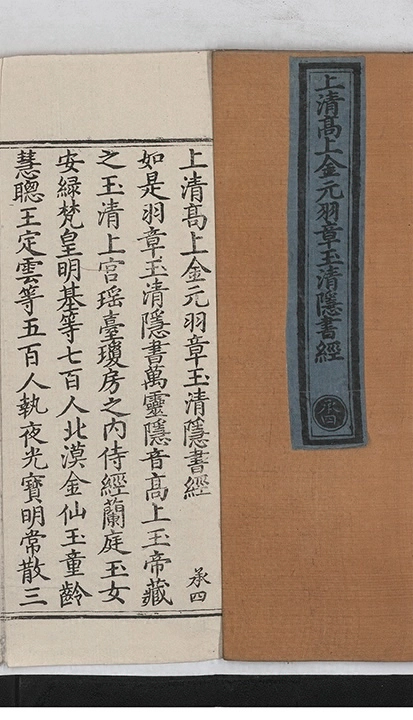 上清高上金元羽章玉清隱書經
上清高上金元羽章玉清隱書經 承四
如是羽章玉清隱書萬靈隱音高上玉帝藏
之玉清上宮瑶臺瓊房之内侍經蘭庭玉女
安緑梵皇明基等七百人北漠金仙玉童齡
慧聰王定雲等五百人執夜光寶明常散三